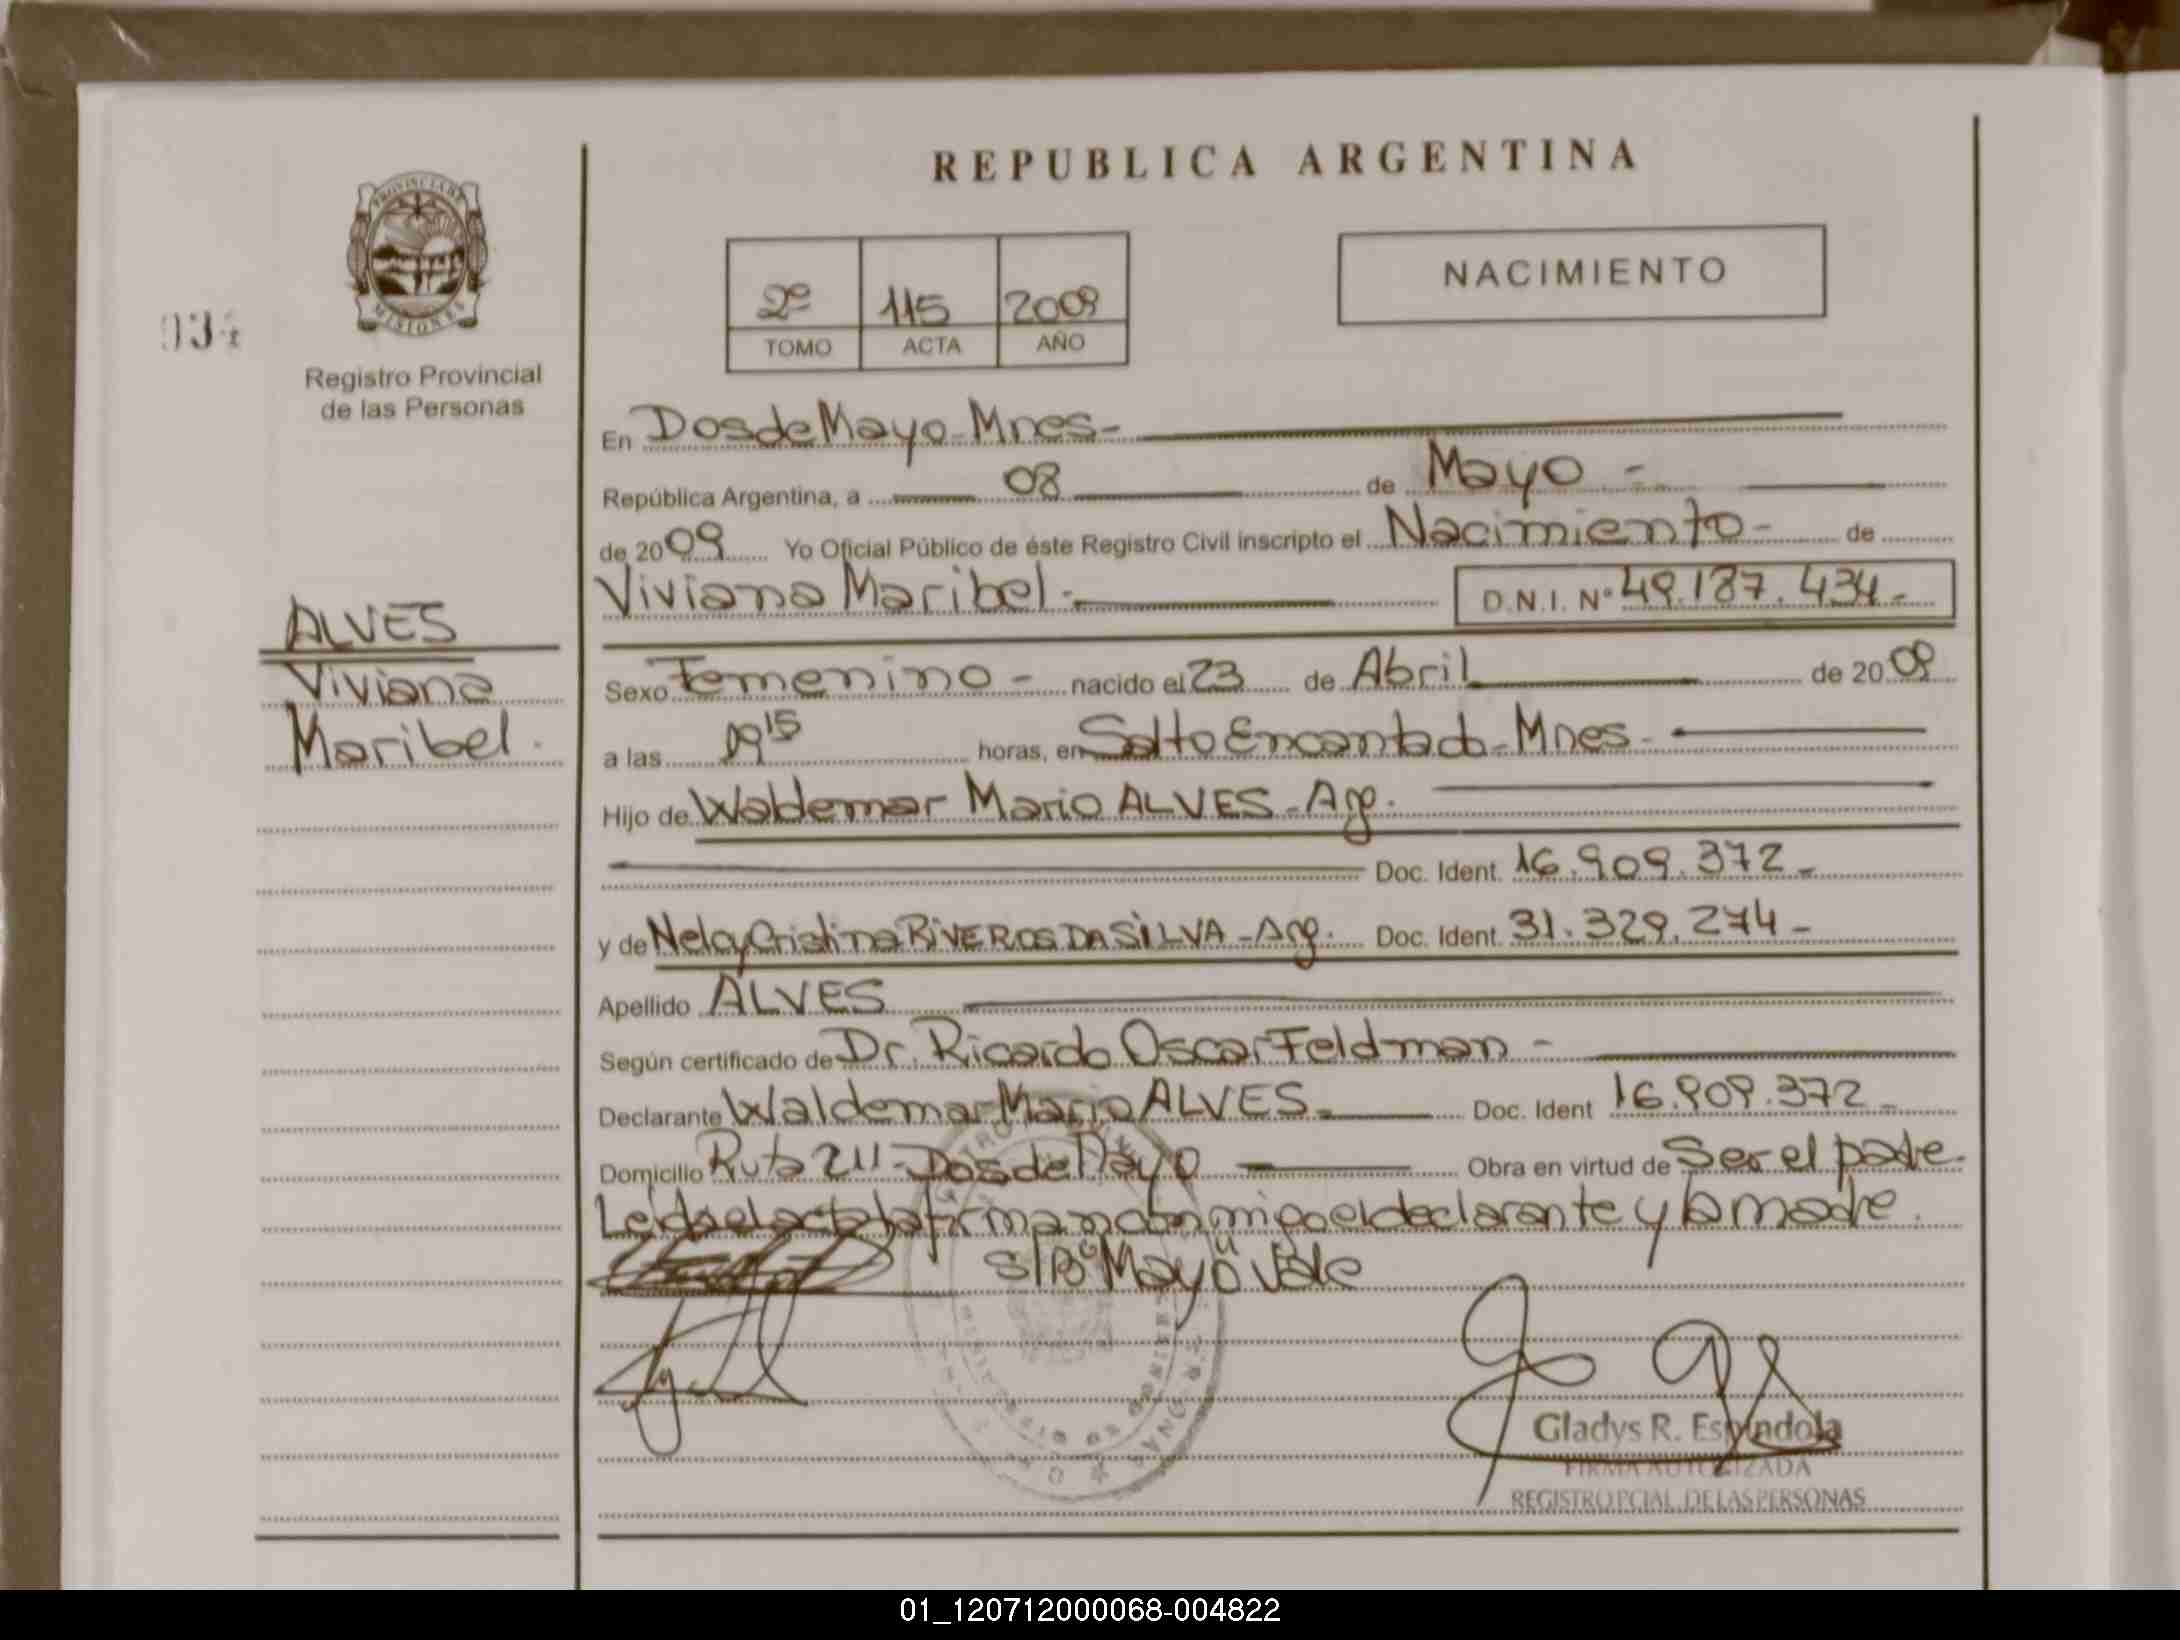 REPUBLICA ARGENTINA
PROVINCIA DE
MISIONES
Registro Provincial
de las Personas
2º 115 2009
TOMO ACTA AÑO
NACIMIENTO
En Dos de Mayo - Mnes -
República Argentina, a 08 de Mayo -
de 2009 Yo Oficial Público de éste Registro Civil inscripto el Nacimiento - de
Viviana Maribel - D.N.I. Nº 49.187.434 -
ALVES
Viviana
Maribel.
Sexo Femenino - nacido el 23 de Abril de 2009
a las 09 15 horas, en Salto Encantado - Mnes -
Hijo de Waldemar Mario ALVES - Arg.
Doc. Ident. 16.909.372 -
y de Nelcy Cristina RIVEROS DA SILVA - Arg. Doc. Ident. 31.329.274 -
Apellido ALVES
Según certificado de Dr. Ricardo Oscar Feldman -
Declarante Waldemar Mario ALVES - Doc. Ident 16.909.372 -
Domicilio Ruta 211 - Dos de Mayo Obra en virtud de Ser el padre.
Leída el acta la firman conmigo el declarante y la madre.
S/Bº Mayo Vale
Gladys R. Espindola
FIRMA AUTORIZADA
REGISTRO PCIAL. DE LAS PERSONAS
01_120712000068-004822